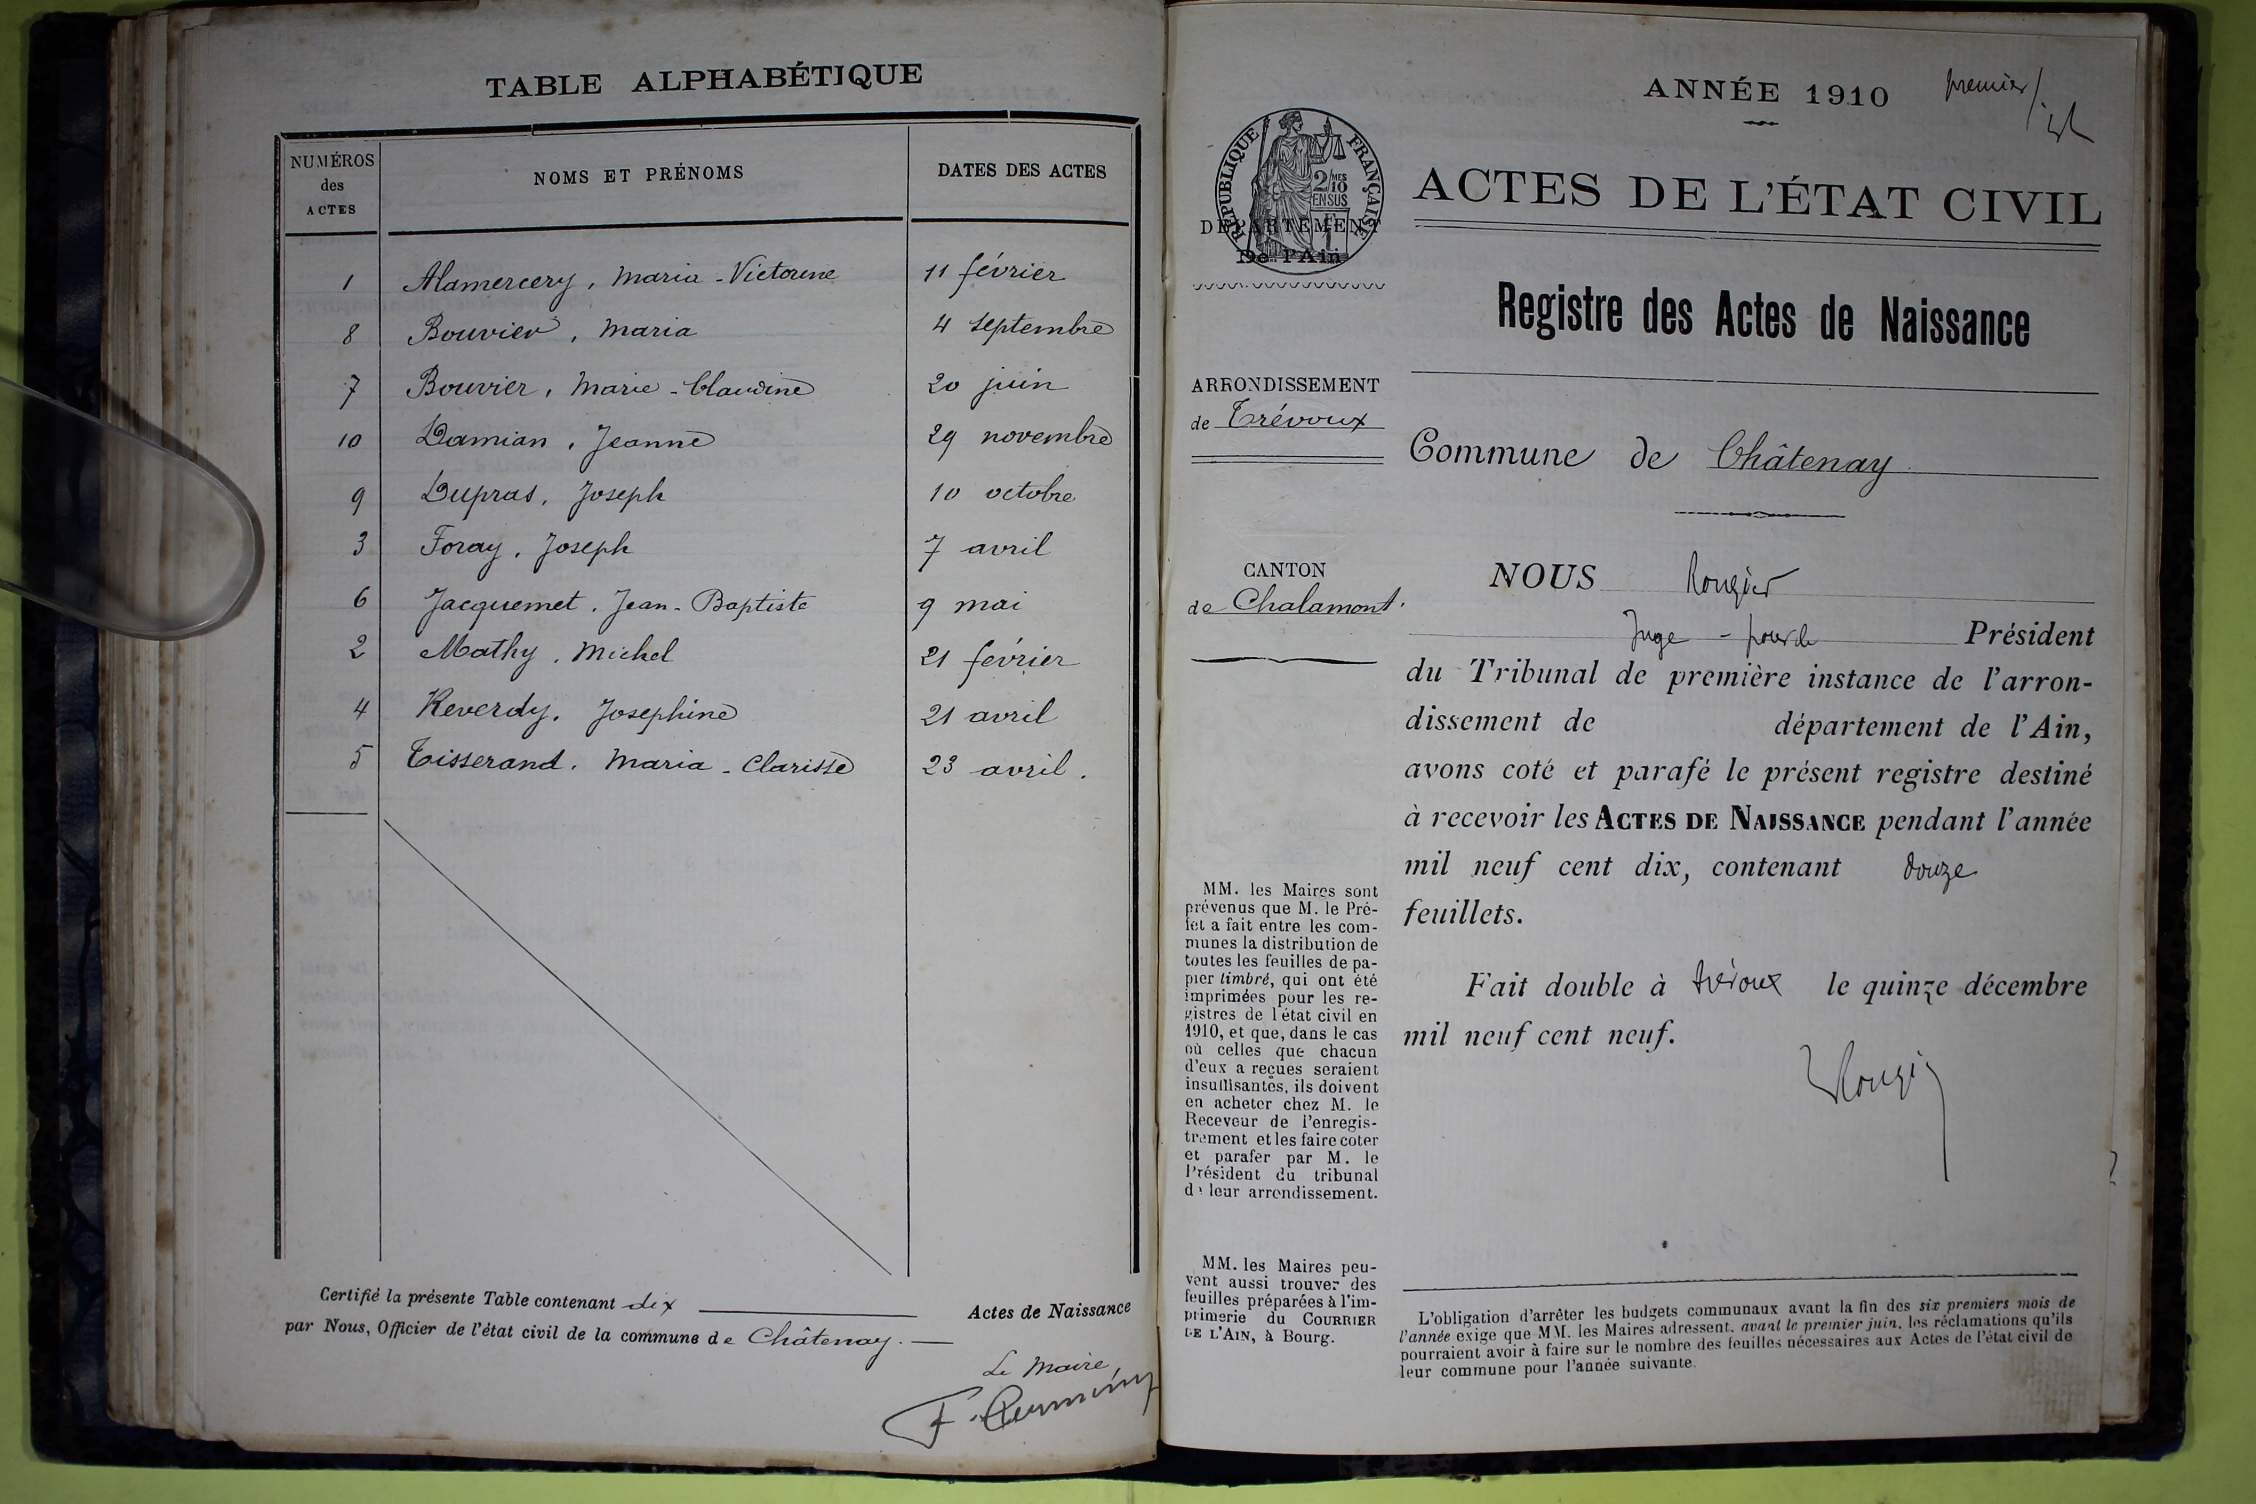 TABLE ALPHABÉTIQUE
NUMÉROS des ACTES
NOMS ET PRÉNOMS
DATES DES ACTES
1 Alamercery, Maria-Victorine 11 février
8 Bouvier, Maria 4 septembre
7 Bouvier, Marie-Claudine 20 juin
10 Damian, Jeanne 29 novembre
9 Dupras, Joseph 10 octobre
3 Foray, Joseph 7 avril
6 Jacquemet, Jean-Baptiste 9 mai
2 Mathy, Michel 21 février
4 Reverdy, Joséphine 21 avril
5 Tisserand, Maria-Clarisse 23 avril.
Certifié la présente Table contenant dix Actes de Naissance
par Nous, Officier de l'état civil de la commune de Châtenay.
Le Maire
ANNÉE 1910
premier
RÉPUBLIQUE FRANÇAISE
2/10 MES
EN SUS
DÉPARTEMENT
De l'Ain
ACTES DE L'ÉTAT CIVIL
Registre des Actes de Naissance
ARRONDISSEMENT
de Trévoux
Commune de Châtenay
CANTON
de Chalamont.
NOUS Rougier
Juge - pour le Président
du Tribunal de première instance de l'arron-
dissement de département de l'Ain,
avons coté et parafé le présent registre destiné
à recevoir les ACTES DE NAISSANCE pendant l'année
mil neuf cent dix, contenant douze
feuillets.
Fait double à Trévoux le quinze décembre
mil neuf cent neuf.
Rougier
MM. les Maires sont
prévenus que M. le Pré-
fet a fait entre les com-
munes la distribution de
toutes les feuilles de pa-
pier timbré, qui ont été
imprimées pour les re-
gistres de l'état civil en
1910, et que, dans le cas
où celles que chacun
d'eux a reçues seraient
insuffisantes, ils doivent
en acheter chez M. le
Receveur de l'enregis-
trement et les faire coter
et parafer par M. le
Président du tribunal
de leur arrondissement.
MM. les Maires peu-
vent aussi trouver des
feuilles préparées à l'im-
primerie du COURRIER
DE L'AIN, à Bourg.
L'obligation d'arrêter les budgets communaux avant la fin des six premiers mois de
l'année exige que MM. les Maires adressent, avant le premier juin, les réclamations qu'ils
pourraient avoir à faire sur le nombre des feuilles nécessaires aux Actes de l'état civil de
leur commune pour l'année suivante.